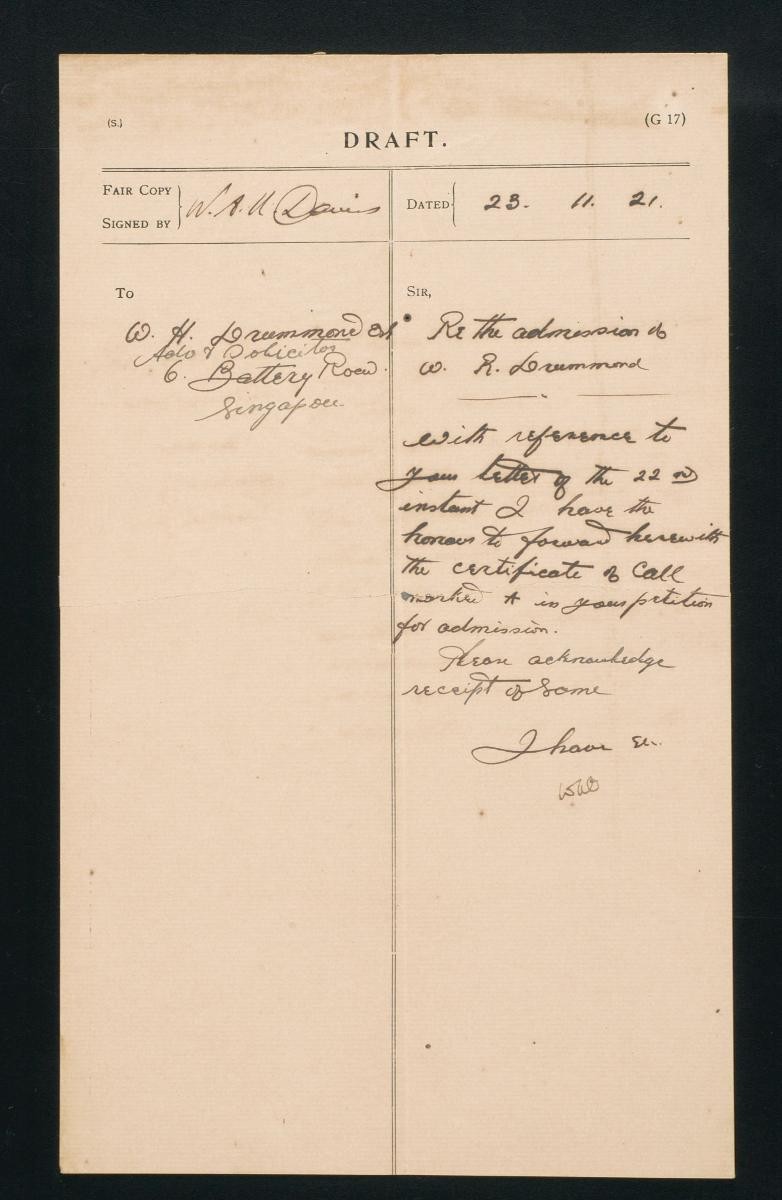 (S.)
(G 17)
DRAFT.
FAIR COPY
SIGNED BY
W. A. N. Davies
DATED 23. 11. 21.
TO
W. H. Drummond Esq
Adv & Solicitor
6. Battery Road.
Singapore
SIR,
Re the admission of
W. R. Drummond
With reference to
your letter of the 22nd
instant I have the
honour to forward herewith
the certificate of Call
marked A in your petition
for admission.
Please acknowledge
receipt of same
I have &c.